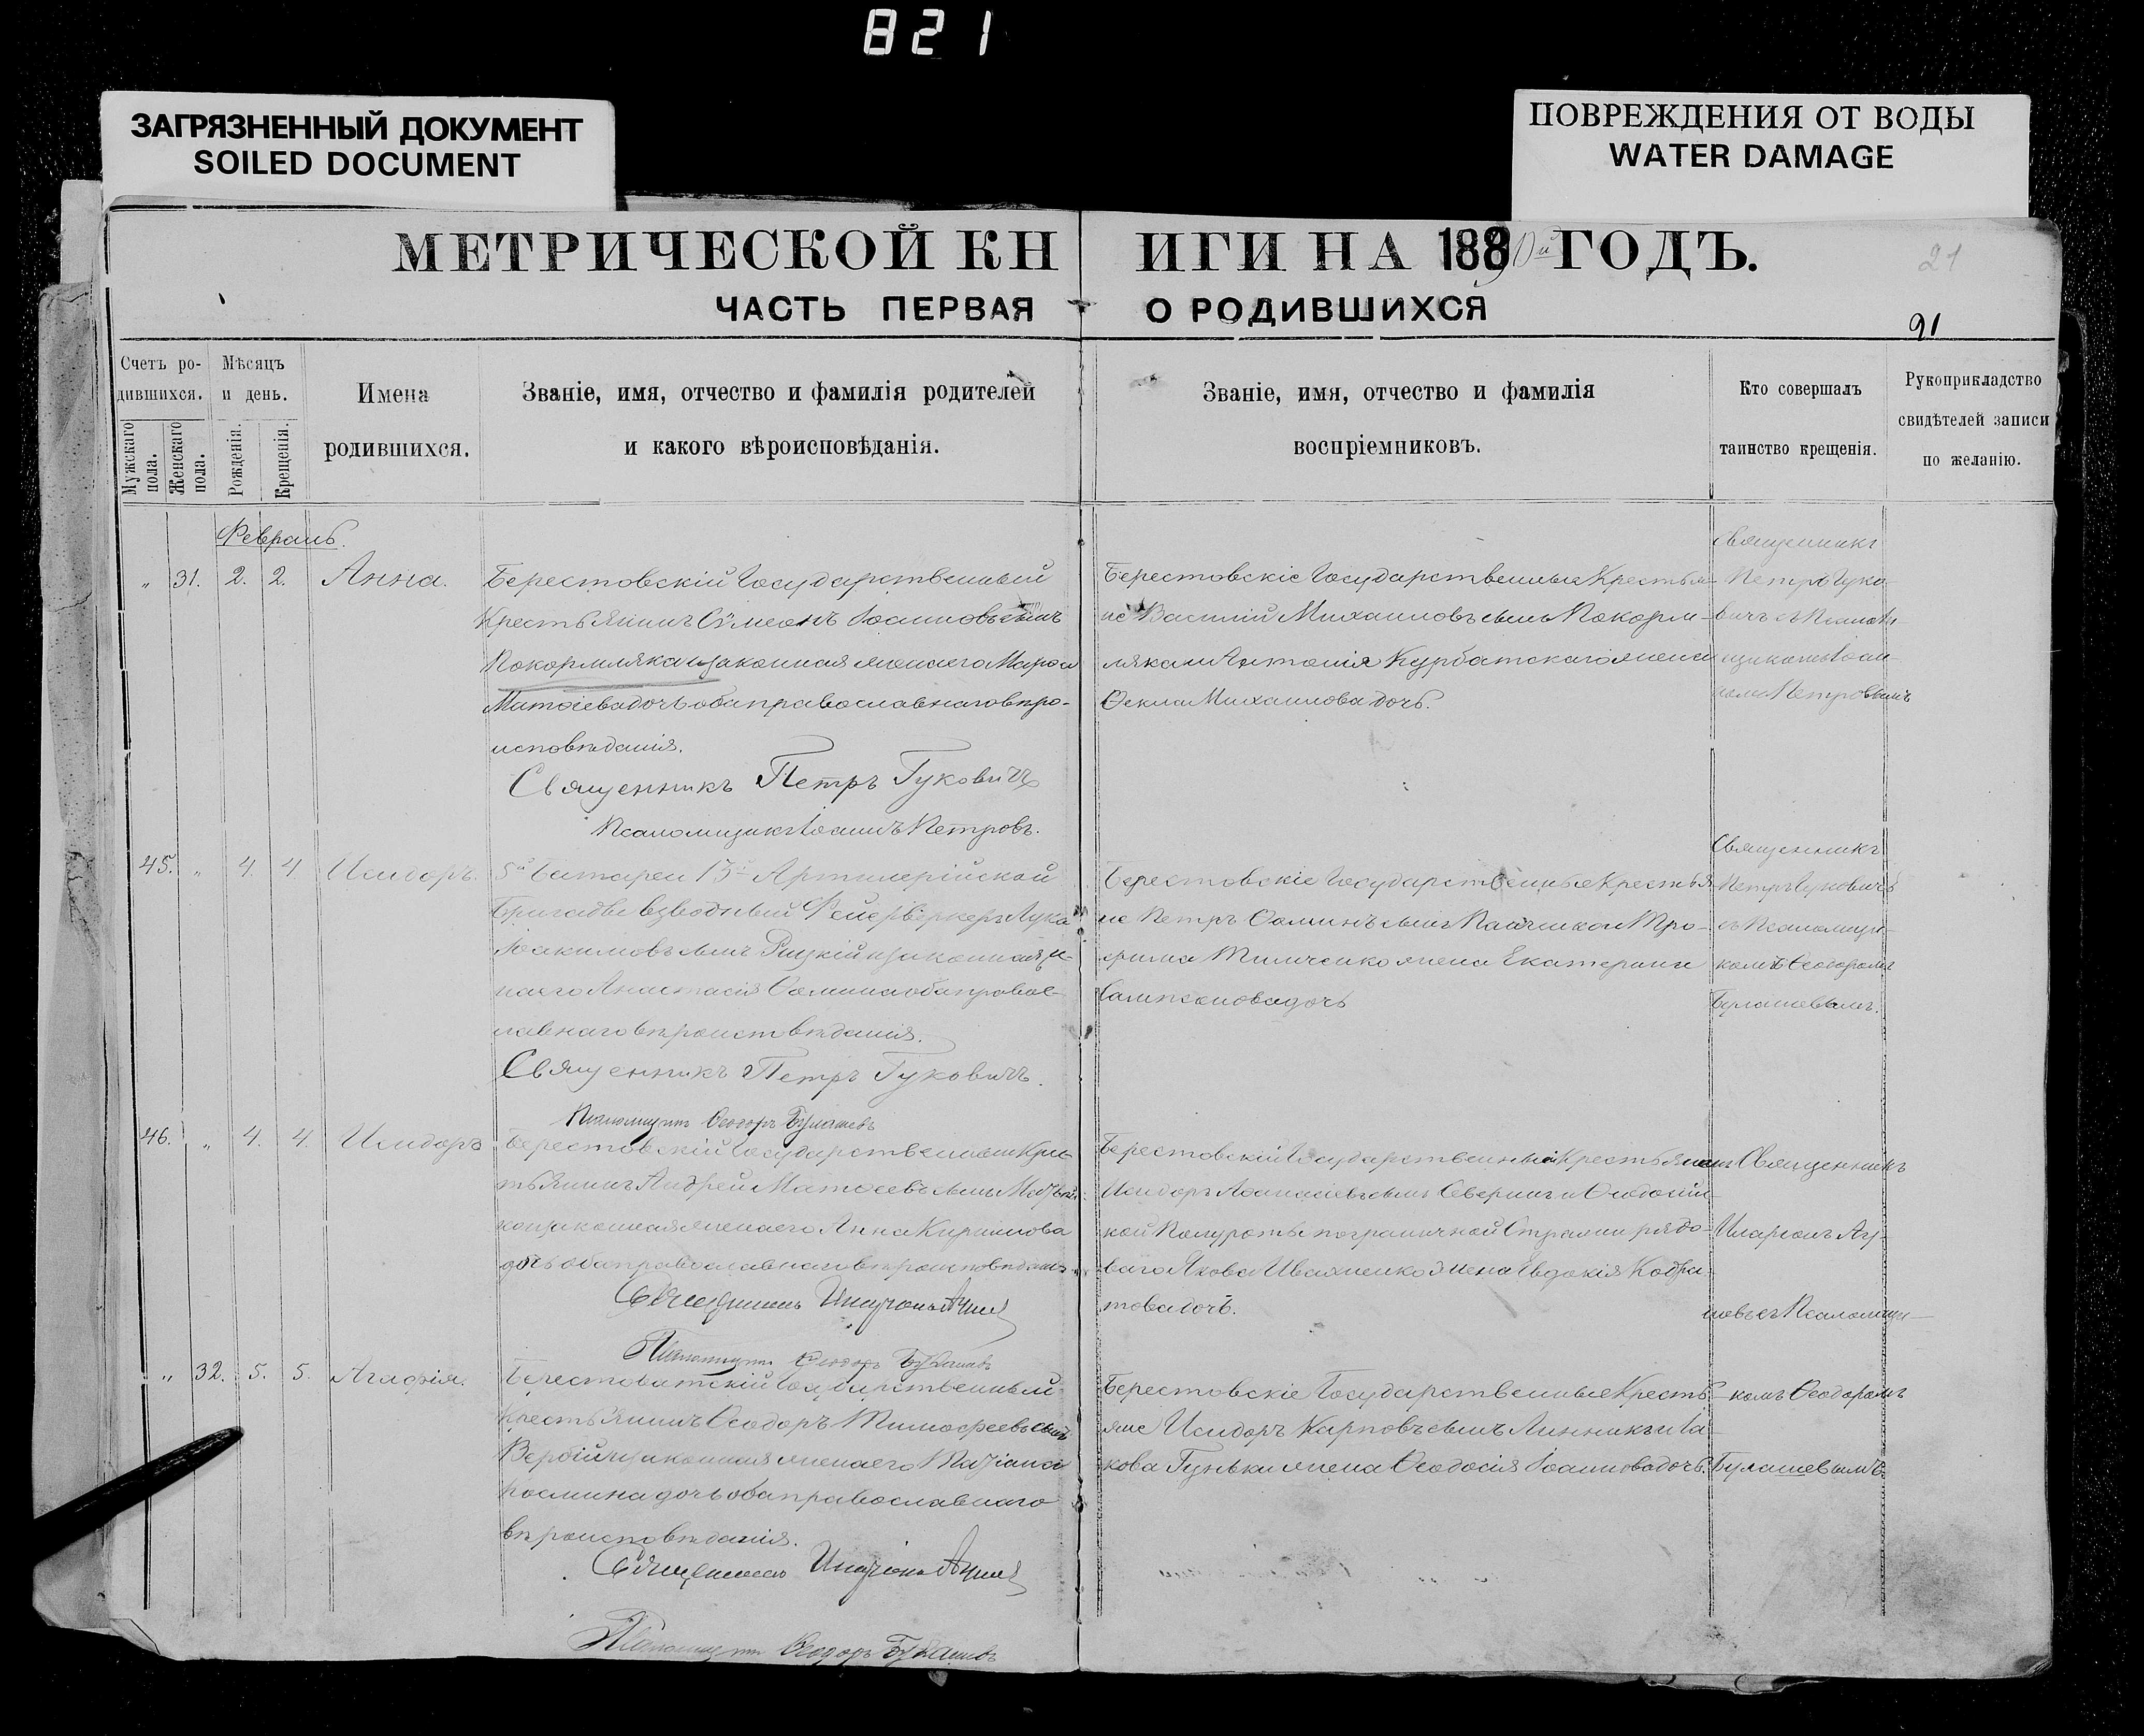 821
ЗАГРЯЗНЕННЫЙ ДОКУМЕНТ
SOILED DOCUMENT
ПОВРЕЖДЕНИЯ ОТ ВОДЫ
WATER DAMAGE
МЕТРИЧЕСКОЙ КНИГИ НА 1890й ГОДЪ.
21
ЧАСТЬ ПЕРВАЯ О РОДИВШИХСЯ
91
Счетъ ро-
дившихся.
Мужскаго пола.
Женскаго пола.
Мѣсяцъ
и день.
Рожденія.
Крещенія.
Имена
родившихся.
Званіе, имя, отчество и фамилія родителей
и какого вѣроисповѣданія.
Званіе, имя, отчество и фамилія
воспріемниковъ.
Кто совершалъ
таинство крещенія.
Рукоприкладство
свидѣтелей записи
по желанію.
Февраль.
„ 31. 2. 2. Анна.
Берестовскій Государственный
Крестьянинъ Сѵмеонъ Іоанновъ сынъ
Покормляка и законная жена его
Матѳіева дочь оба православнаго вѣро-
исповѣданія.
Священникъ Петръ Гуковичъ
Псаломщикъ Іоаннъ Петровъ.
Берестовскіе Государственные Крестья-
не Василій Михаиловъ сынъ Покорм-
ляка и Антонія Курбатскаго жена
Ѳекла Михаилова дочь.
Священникъ
Петръ Гуко-
вичъ съ Псаломщикомъ Іоан-
номъ Петровымъ
45. „ 4. 4 Исидоръ.
5й батареи 13й Артиллерійской
Бригады взводный Фейерверкеръ Лука
Іоакимовъ сынъ и законная же-
на его Анастасія оба правос-
лавнаго вѣроисповѣданія.
Священникъ Петръ Гуковичъ.
Псаломщикъ Ѳеодоръ Булашевъ
Берестовскіе Государственные Крестья-
не Петръ сынъ и Тро-
фима Тимченко жена Екатерина
Сампсонова дочь
Священникъ
Петръ Гуковичъ
съ Псаломщи-
комъ Ѳеодоромъ
Булашевымъ.
46. „ 4. 4. Исидоръ
Берестовскій Государственный Крес-
тьянинъ Андрей Матѳеевъ сынъ
законная жена его Анна Кириллова
дочь оба православнаго вѣроисповѣданія
Священникъ Иларіонъ
Псаломщикъ Ѳеодоръ Булашевъ
Берестовскій Государственный Крестьянинъ
Исидоръ Аѳанасіевъ сынъ Северинъ и
пограничной Стражи рядо-
ваго Якова Ивахненко жена Евдокія
дочь.
Священникъ
Иларіонъ
съ Псаломщи-
комъ Ѳеодоромъ
Булашевымъ
„ 32. 5. 5. Агафія.
Государственный
Крестьянинъ Ѳеодоръ Тимофеевъ сынъ
Вербій и законная жена его Татіана
Космина дочь оба православнаго
вѣроисповѣданія.
Священникъ Иларіонъ
Псаломщикъ Ѳеодоръ Булашевъ
Берестовскіе Государственные Кресть-
яне Исидоръ Карповъ сынъ Линникъ и Іа-
кова Гуньки жена Ѳеодосія Іоаннова дочь.